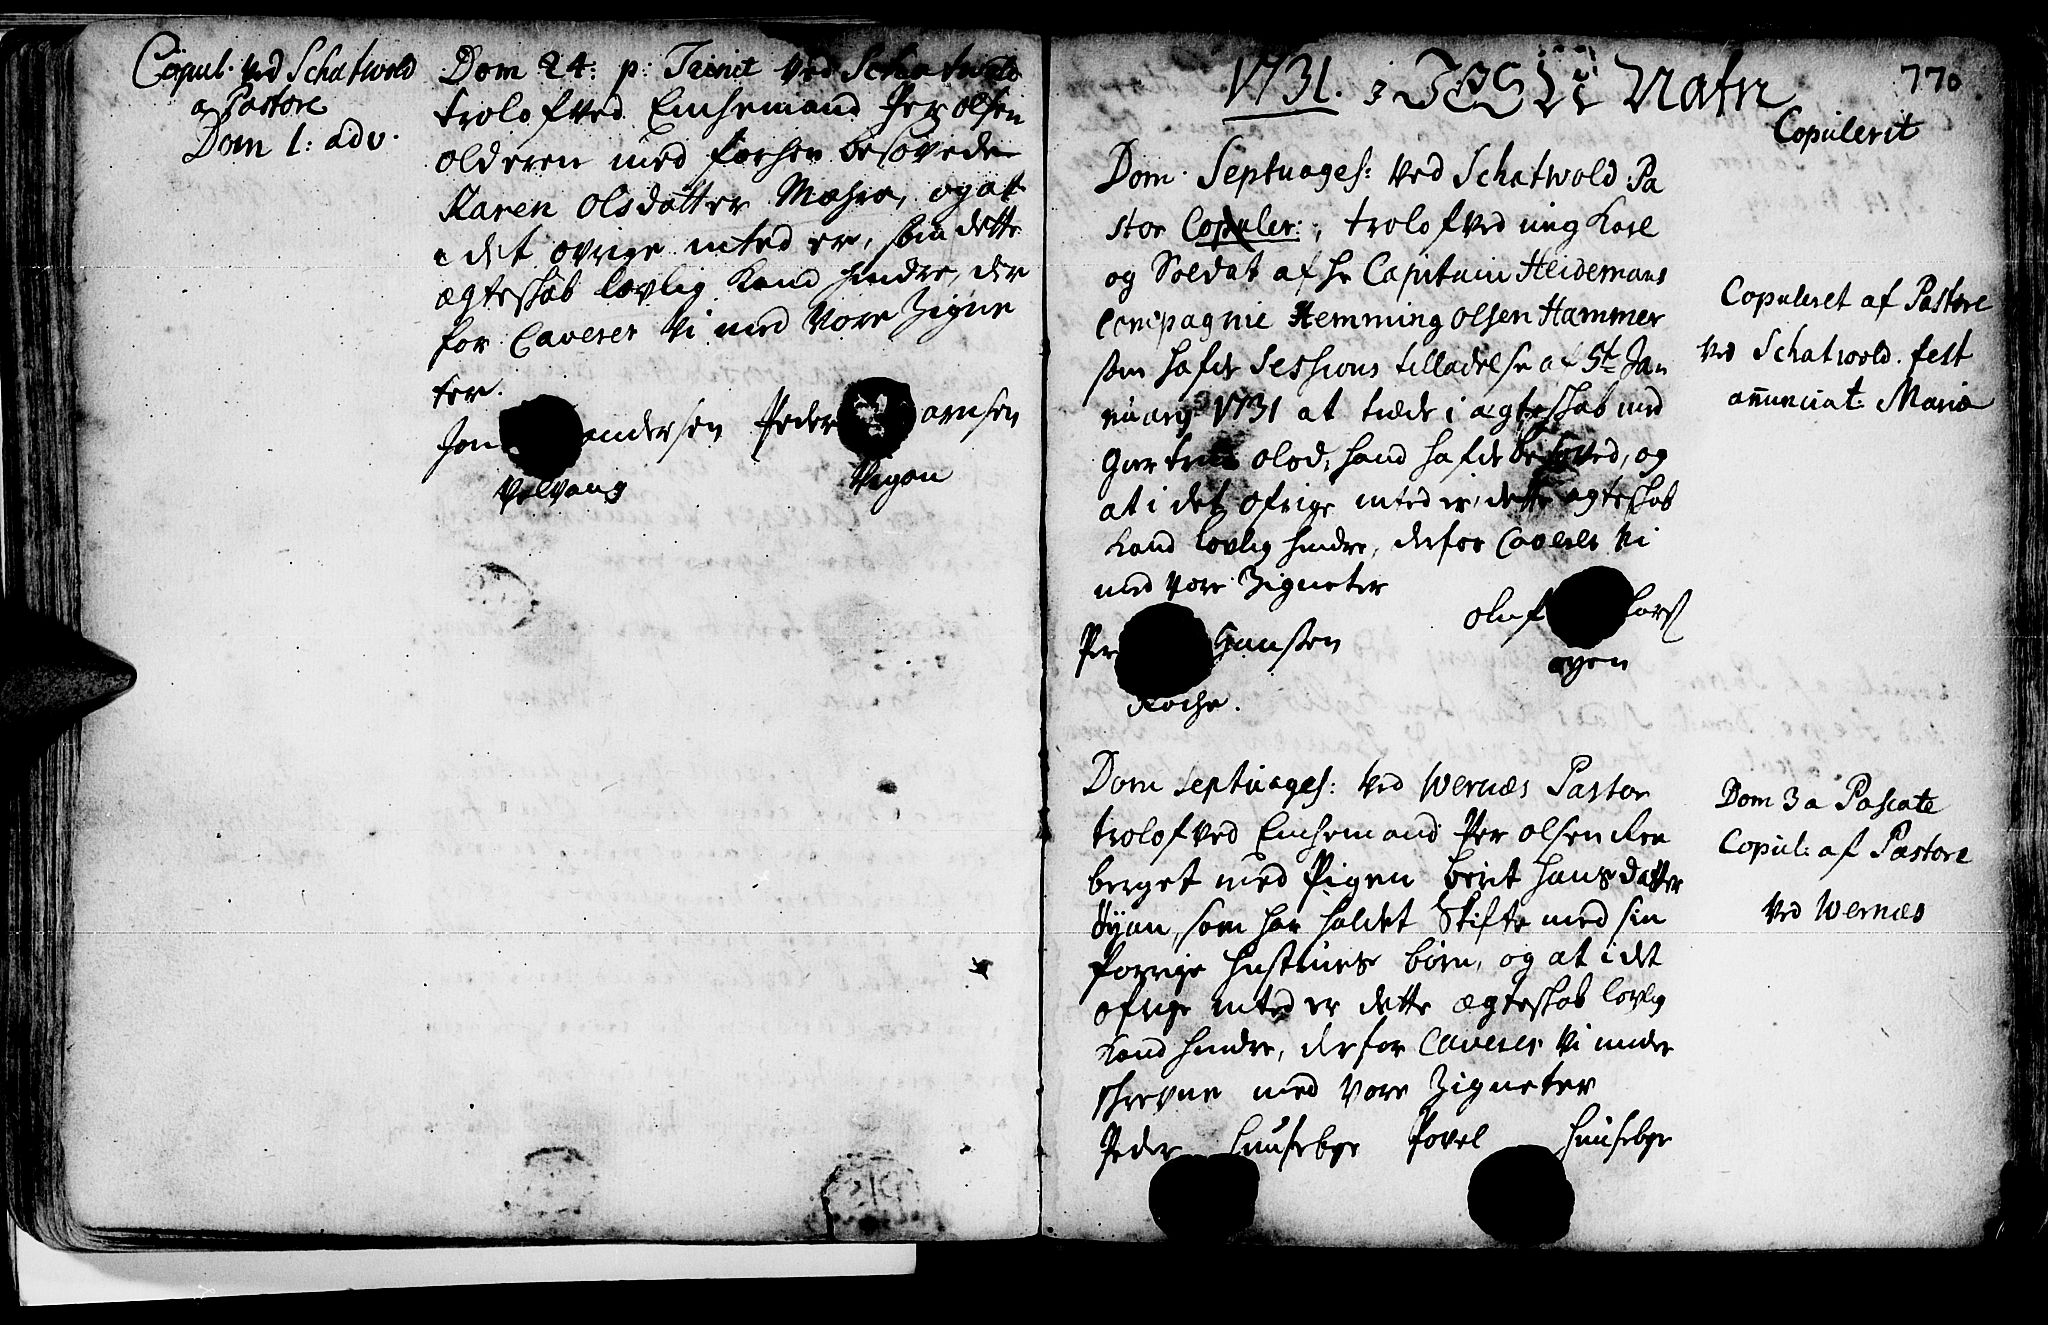 Copul. ved Schatwold
a Pastore
Dom 1: adv.
Dom 24: p: Trinit ved Schatwold
trolofved Enchemand Per olsen
olderen med forhen besovede
Karen Olsdatter Mæhre, og at
i det øvrige inted er, som dette
ægteskab lovlig kand hindre, der
for Caverer vi med vore Zigne
ter.
Jon andersen Peder arnsen
Velvang Vigan
1731. i JESU Nafn
770
Copulerit
Dom. Septuages: ved Schatwold Pa
stor Copuler:, trolofved ung Karl
og Soldat af hr Capitain Heidemans
Compagnie Hemming olsen Hammer
som hafde Sessions tilladelse af 5te Jan
nuarij 1731 at træde i ægteskab med
olsd, hand hafde besoved, og
at i det ofrige inted er, dette ægteskab
kand lovlig hindre, derfor Caverer vi
med vore Zigneter
Per Hanssen Oluf Lars
øyen
Roche.
Copuleret af Pastore
ved Schatwold fest
anunciat: Mariæ
Dom septuages: ved Wernæs Pastor
trolofved Enchemand Per olsen Ree
berget med Pigen berit hansdatter
øyan, som har holdet Skifte med sin
forrige hustrues børn, og at i det
ofrige inted er dette ægteskab lovlig
kand hindre, derfor Caverer vi under
skrevne med vore Zigneter
Peder huusebye Povel huusebye
Dom 3 a Pascate
Copul: af Pastore
ved Wernæs